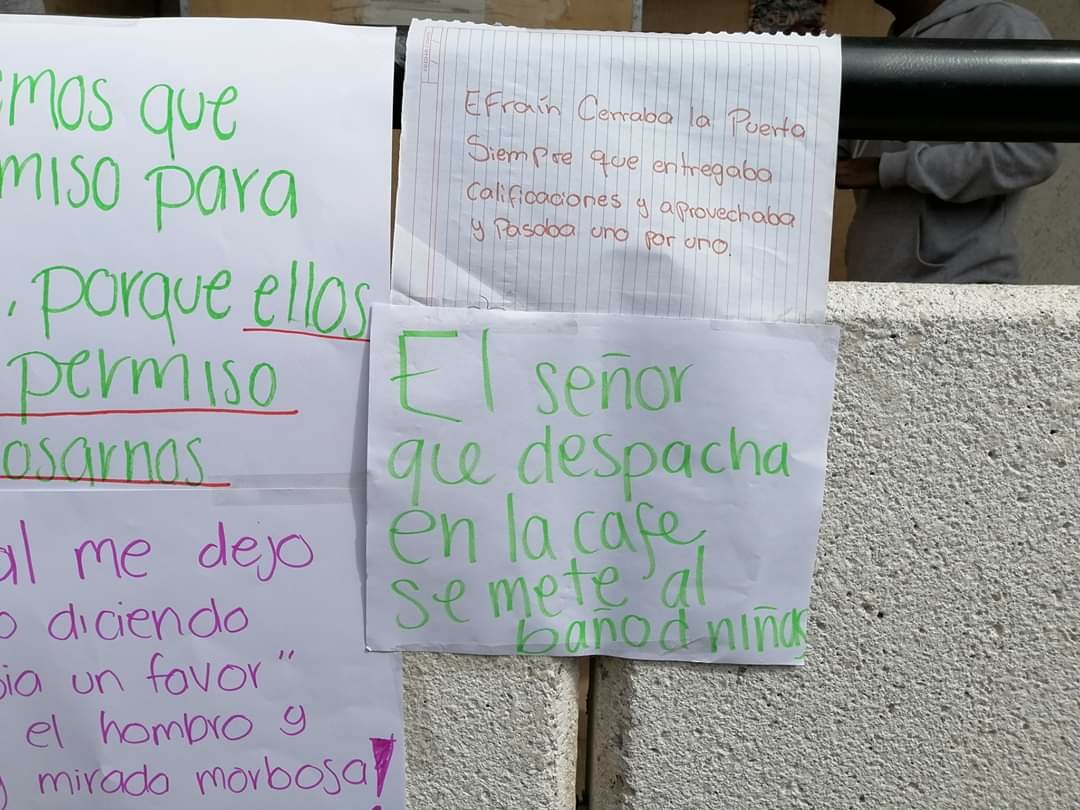 que
para
, porque ellos
permiso
me dejo
diciendo
un favor"
el hombro y
mirada morbosa!
Efraín Cerraba la Puerta
Siempre que entregaba
calificaciones y aprovechaba
y Pasaba uno por uno.
El señor
que despacha
en la cafe
se mete al
baño d niñas